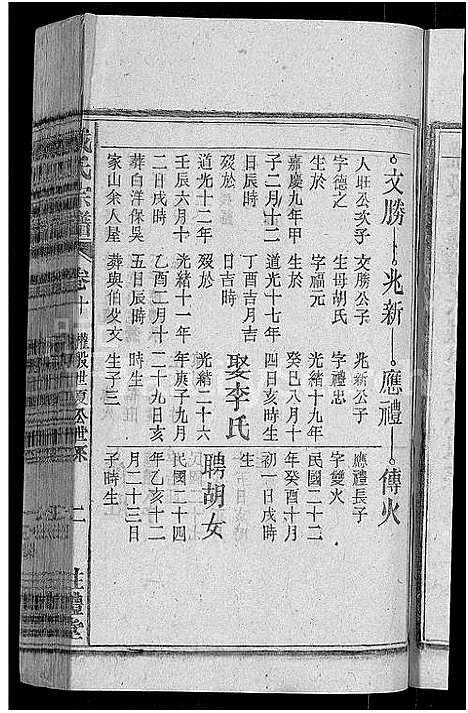 文勝―兆新―應禮―傳火
人旺公次子
字德之
生於
嘉慶九年甲
子二月十二
日辰時
歿於
道光十二年
壬辰六月十
二日戌時
葬白洋保吳
家山余人屋
文勝公子
生母胡氏
字福元
道光十七年
丁酉吉月吉
日吉時
歿於
光緒十一年
乙酉二月十
五日辰時
葬與伯發文
兆新公子
字禮忠
光緒十九年
癸巳八月十
四日亥時生
娶李氏
光緒二十六
年庚子九月
二十九日亥
時生
生子三
應禮長子
字雙火
民國二十二
年癸酉十月
初一日戌時
生
聘胡女
民國二十四
年乙亥十二
月二十三日
子時生
戴氏宗譜
卷十
世系
二